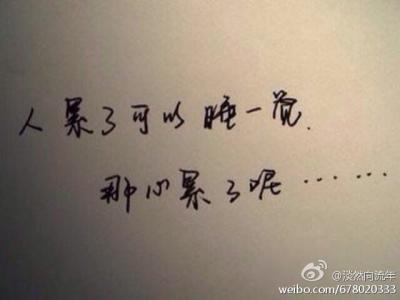 人累了可以睡一觉.
那心累了呢……
@淡然向流年
weibo.com/678020333